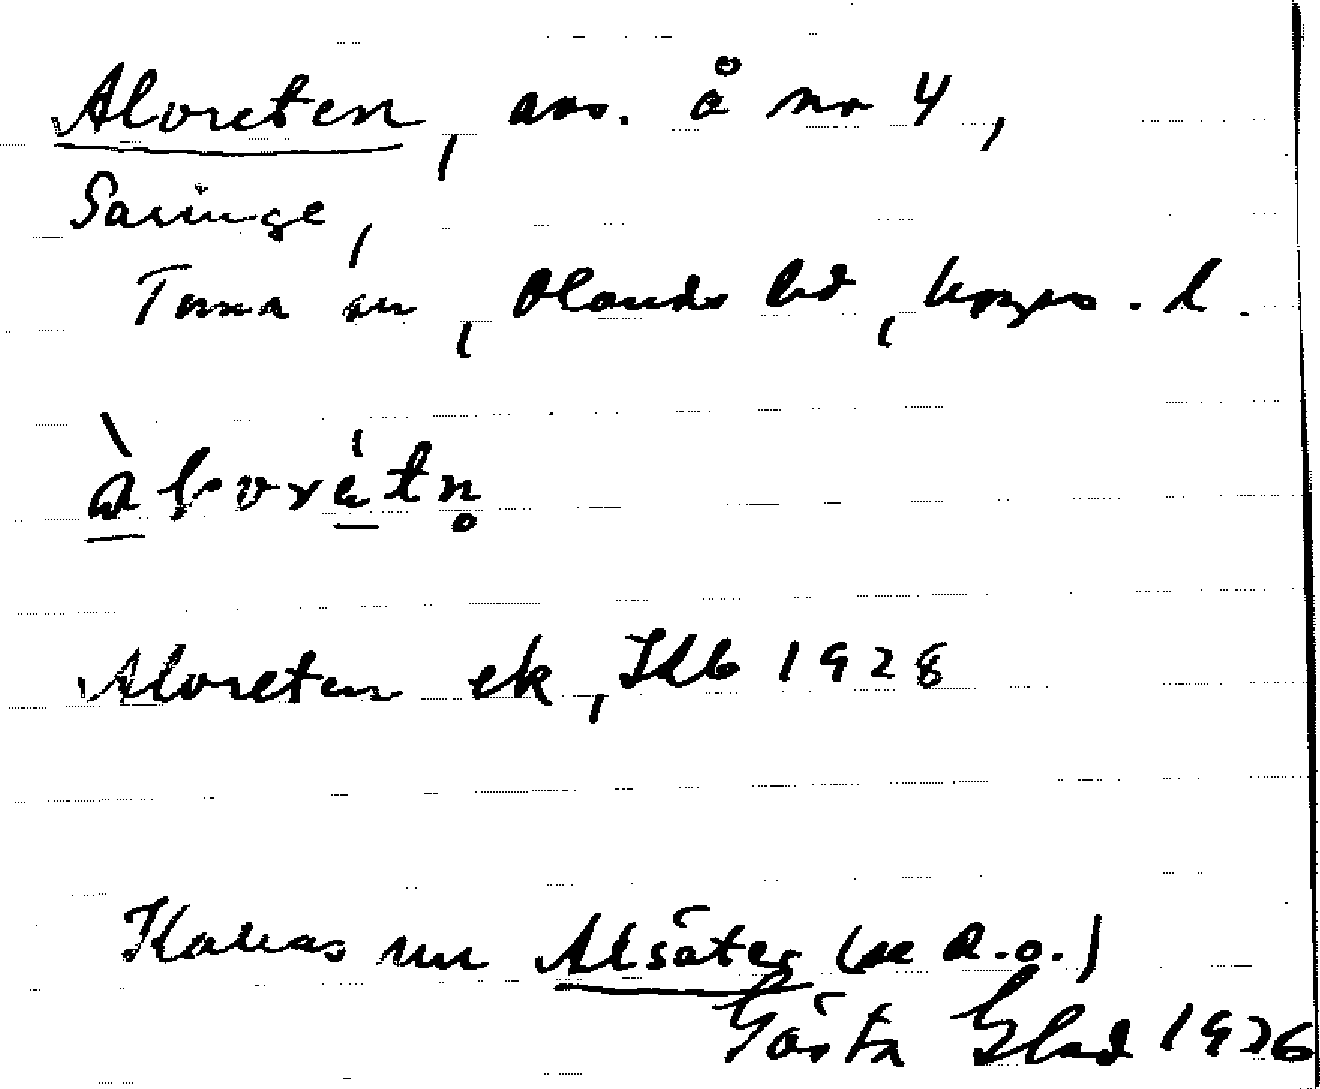 Alvreten, avs. å nr 4,
Saringe,
Tuna sn, Olands hd, Upps. l.
àlvrètn̥
Alvreten ek, Jdb 1928
Kallas nu Alsäter (se d.o.)
Gösta Blad 1936